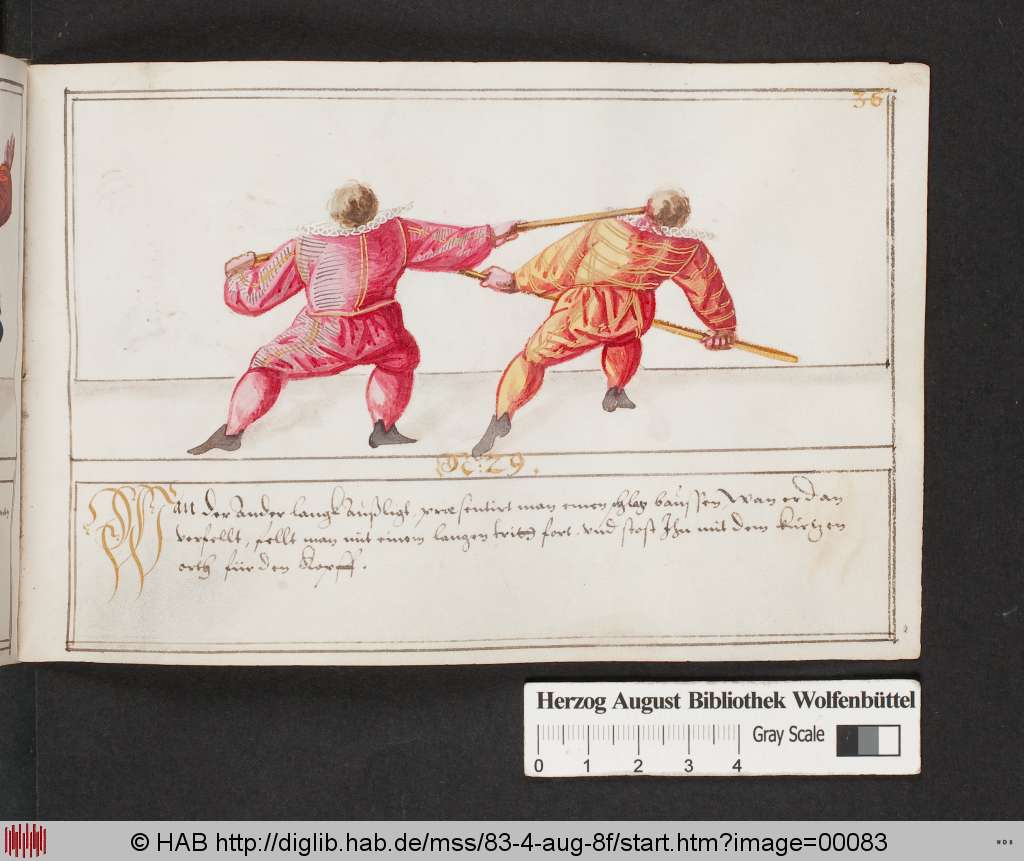 36
N: 29.
Wan der Ander langk Außligt, præsentirt man einen schlag baussen, Wan er dan
verfellt, fellt man mit einem langen tritt fort, vnd stost Ihn mit dem kurtzen
orth für den Kopff.
Herzog August Bibliothek Wolfenbüttel
Gray Scale
0 1 2 3 4
© HAB http://diglib.hab.de/mss/83-4-aug-8f/start.htm?image=00083